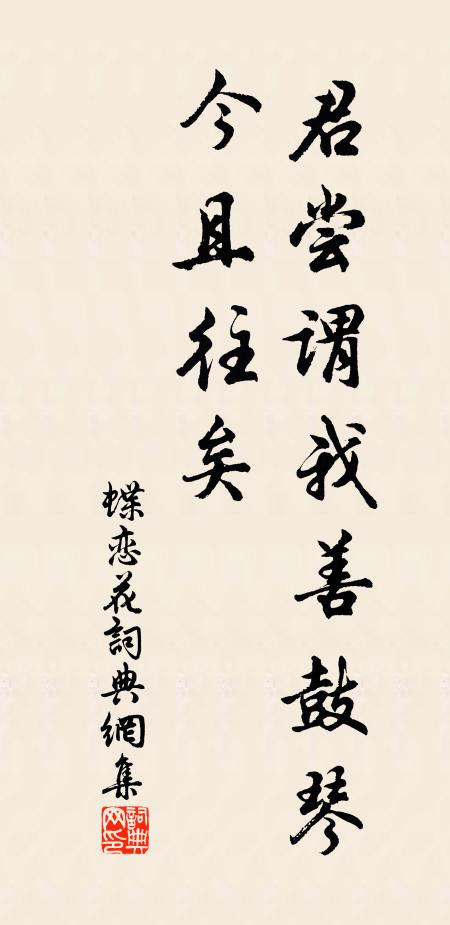 君尝谓我善鼓琴
今且往矣
蝶恋花詞典網集
詞典網印